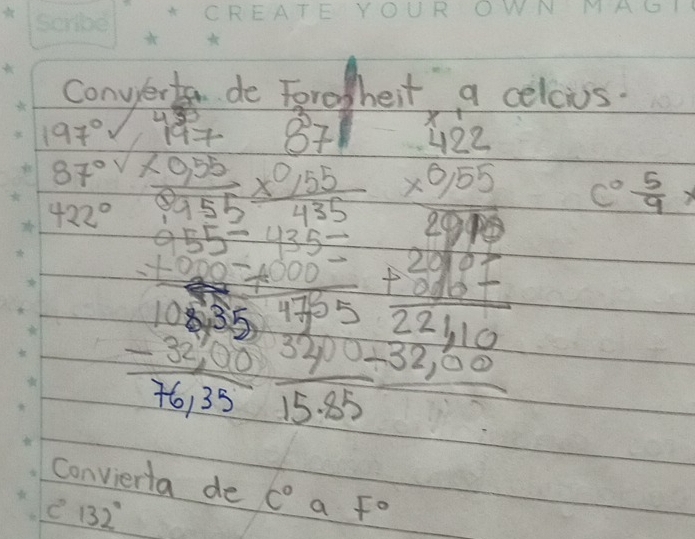 CREATE YOUR OWN MAGI
Scribe
Convierta de Forenheit a celcius.
197° 197 87 422
87° x 0,55 x 0,55 x 0,55
422° 955 435 C° 5/9 x
955 435
+ 000 + 000 +
108,35 4785 221,10
- 32,00 32,00 - 32,00
76,35 15.85
Convierta de C° a F°
C° 132°